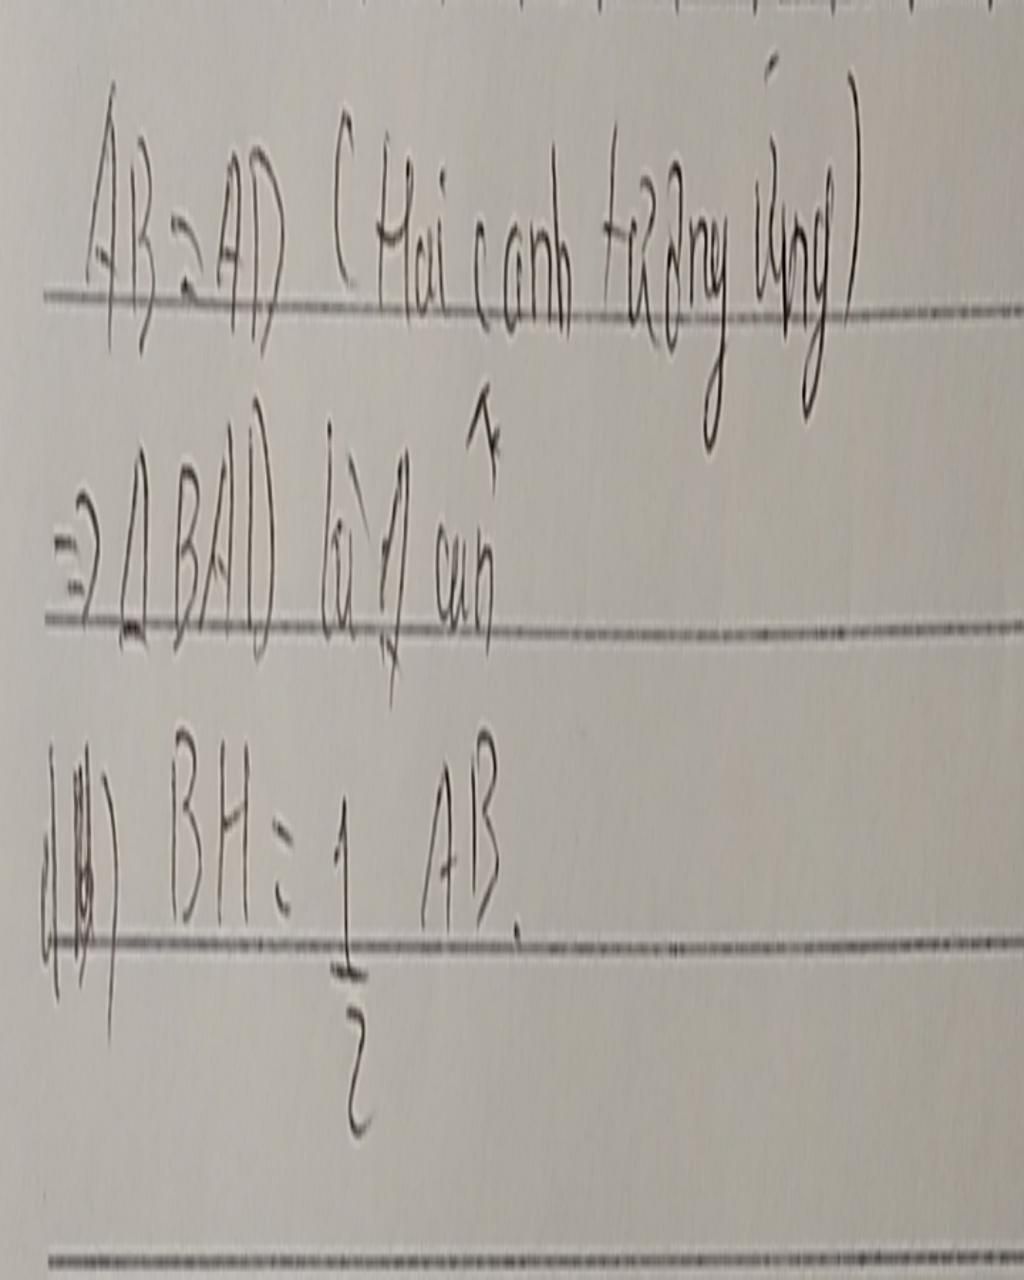 AB = AD (Hai cạnh tương ứng)
=> Δ BAD là Δ cân
d) BH = 1/2 AB.